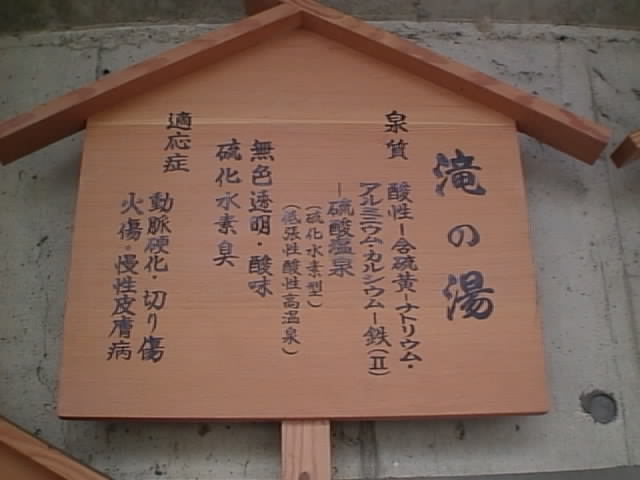 滝の湯
泉質
酸性－含硫黄－ナトリウム・
アルミニウム・カルシウム－鉄(Ⅱ)
－硫酸塩泉
(硫化水素型)
(低張性酸性高温泉)
無色透明・酸味
硫化水素臭
適応症
動脈硬化 切り傷
火傷・慢性皮膚病